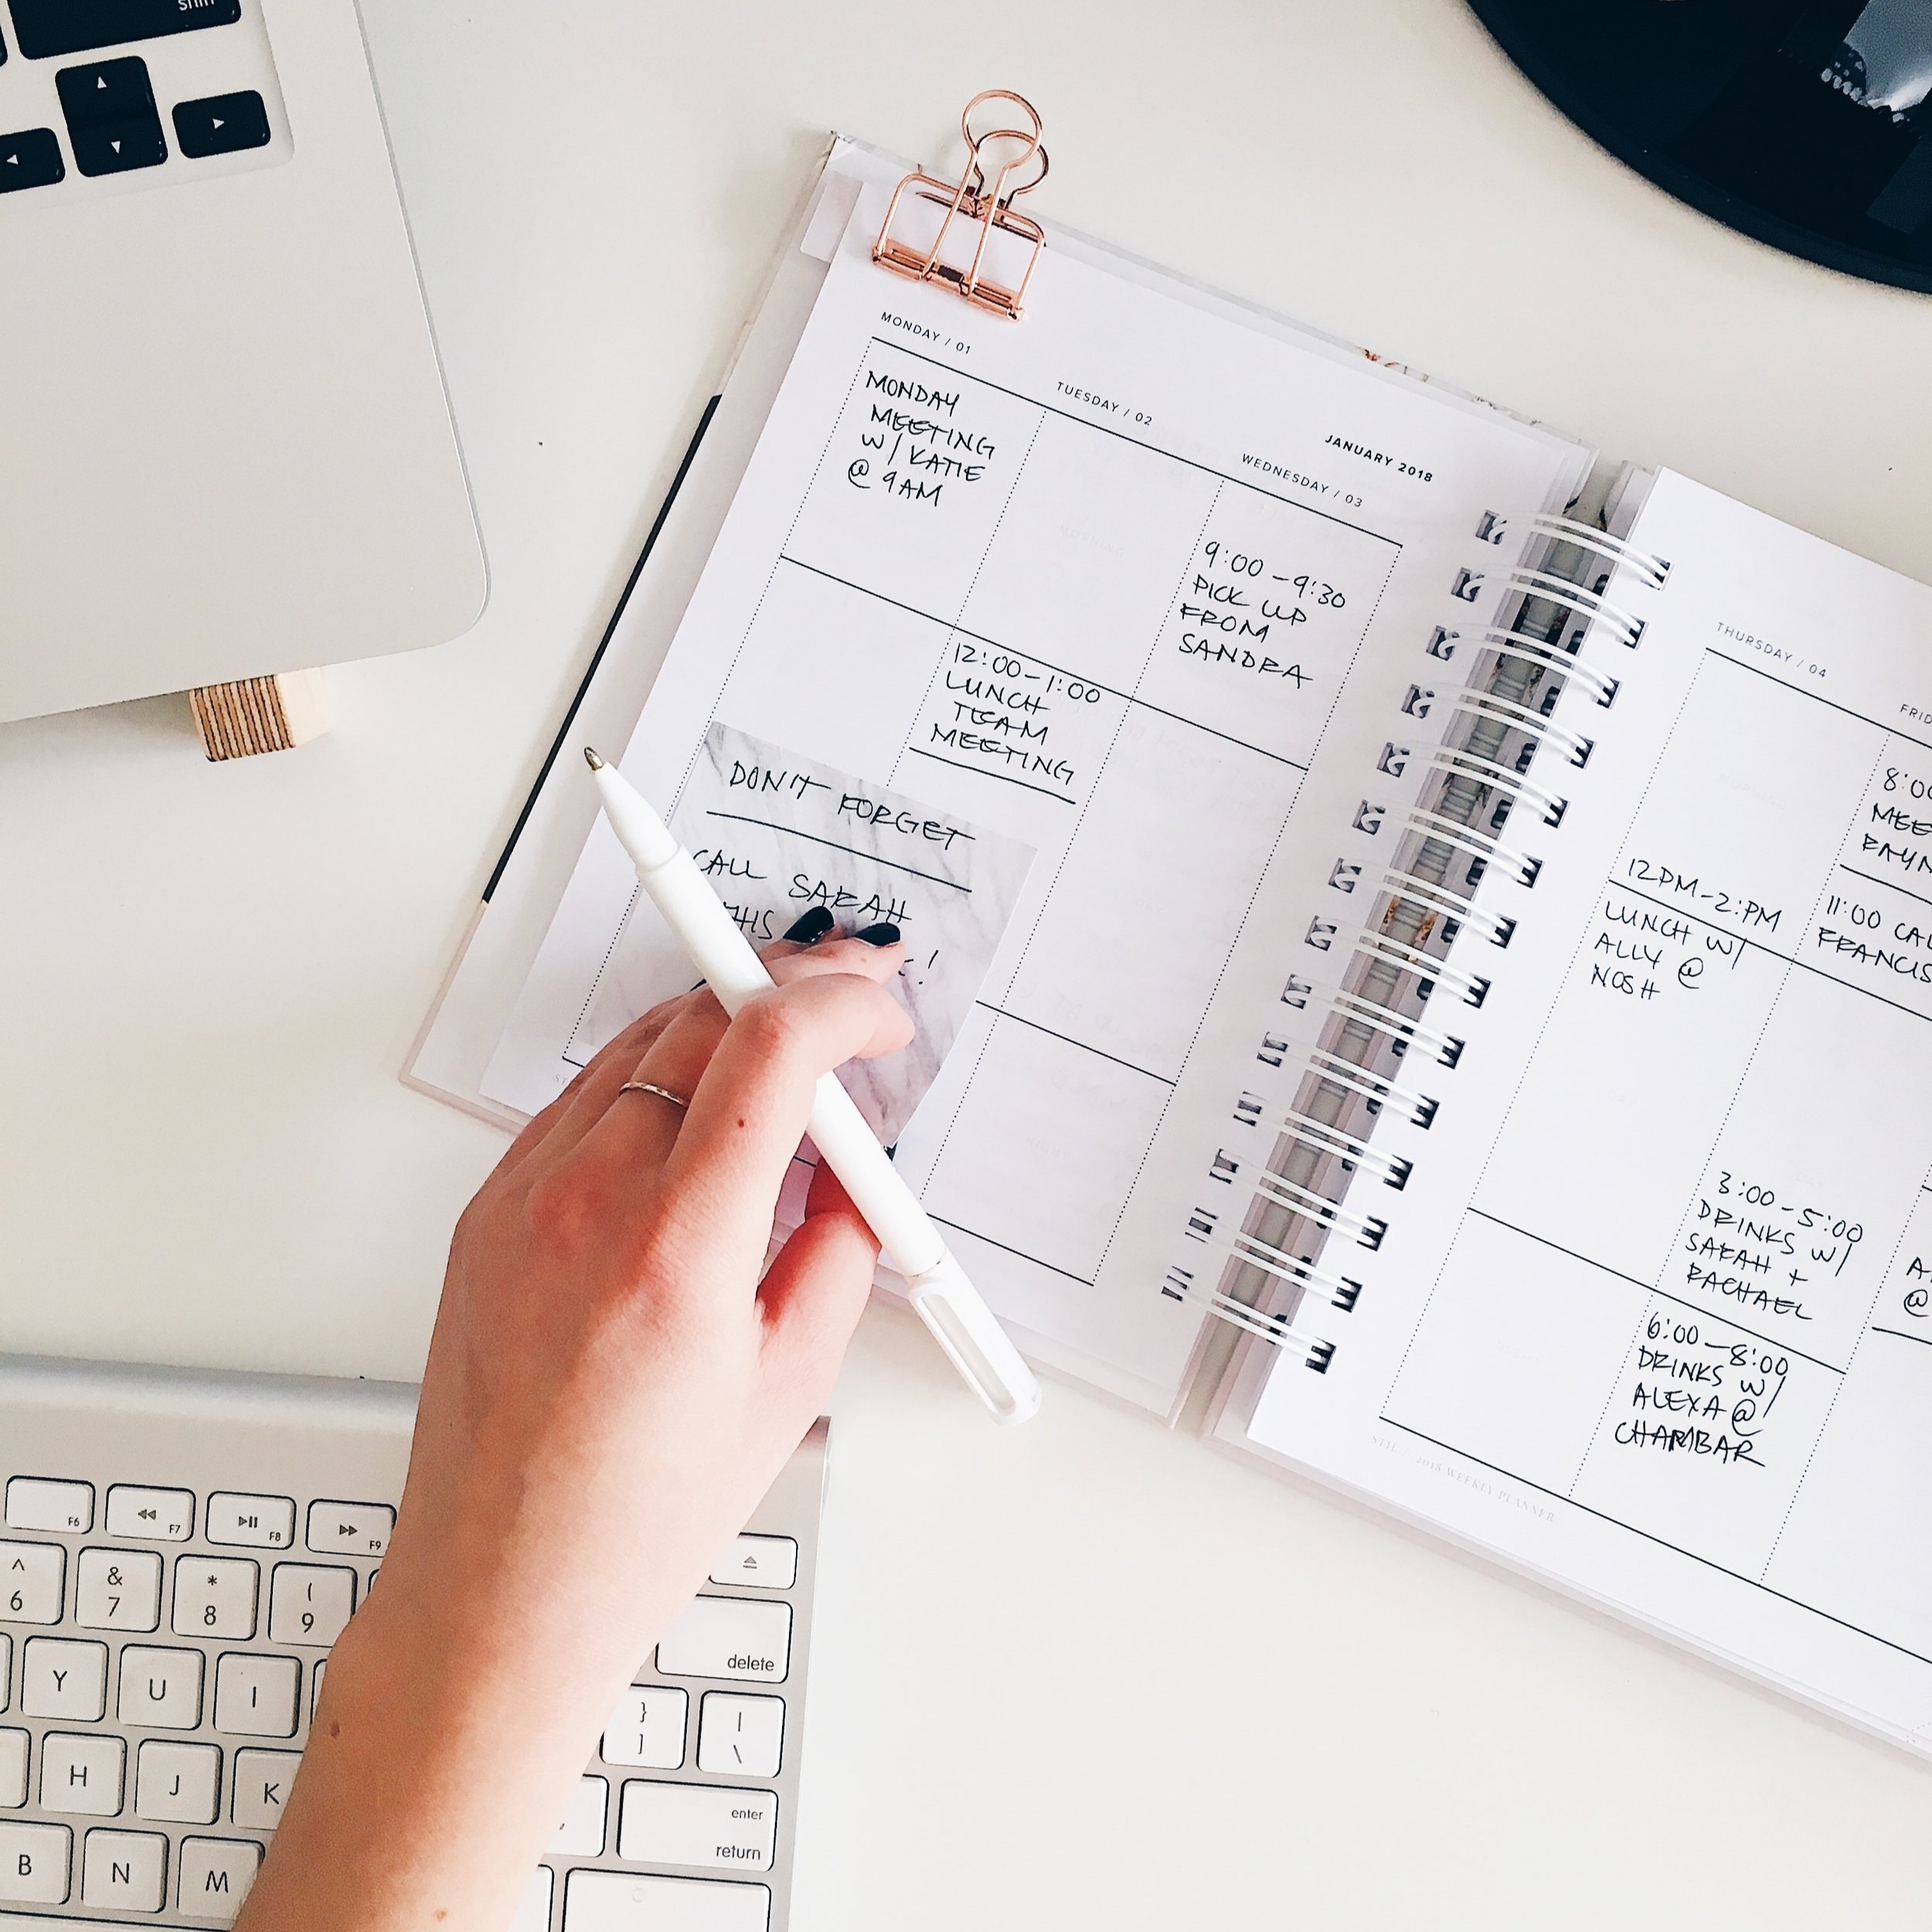 shift
MONDAY / 01
TUESDAY / 02
JANUARY 2018
WEDNESDAY / 03
MONDAY
MEETING
W/ KATIE
@ 9AM
12:00-1:00
LUNCH
TEAM
MEETING
9:00-9:30
PICK UP
FROM
SANDRA
DON'T FORGET
CALL SARAH
THIS
!
THURSDAY / 04
12PM-2:PM
LUNCH W/
ALLY @
NOSH
FRID
8:00
MEE
11:00 CAL
FRANCIS
3:00-5:00
DRINKS W/
SARAH +
RACHAEL
6:00-8:00
DRINKS W/
ALEXA @
CHAMBAR
@
2018 WEEKLY PLANNER
F6
F7
F8
F9
^ & * (
6 7 8 9
delete
Y U I } |
] \
H J K
enter
return
B N M